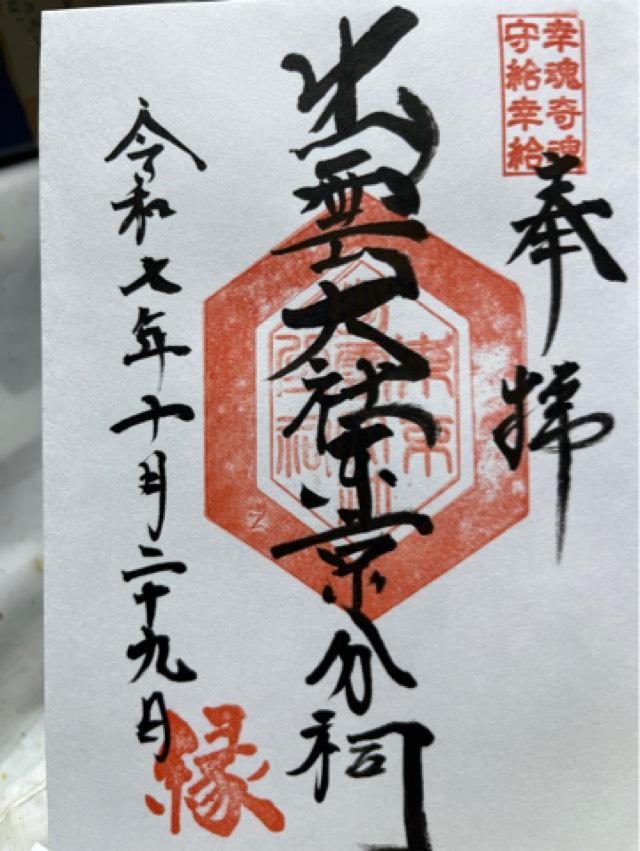 幸魂奇魂
守給幸給
奉拝
出雲大社東京分祠
令和七年十月二十九日
縁